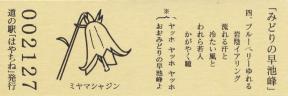 「みどりの早池峰」
四、ブルーベリーゆれる
岩陰イアリング
流れる汗と
冷たい風と
われら若人
かがやく瞳
※
ヤッホ ヤッホ ヤッホ
おおみどりの早池峰よ
ミヤマシャジン
002127
道の駅「はやちね」発行